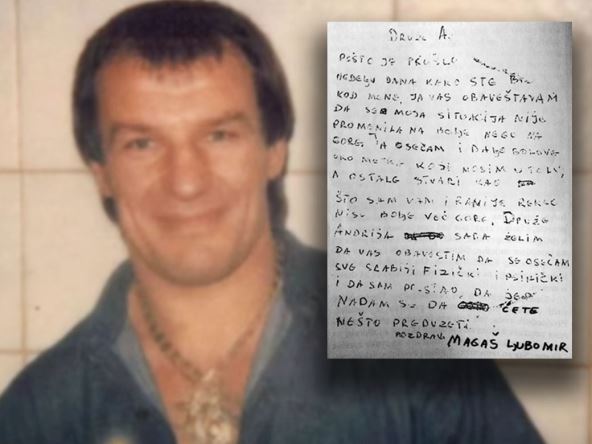 DRUŽE A.
POŠTO JE PROŠLO
NEDELJU DANA KAKO STE BILI
KOD MENE, JA VAS OBAVEŠTAVAM
DA SE MOJA SITUACIJA NIJE
PROMENILA NA BOLJE NEGO NA
GORE, JA OSEĆAM I DALJE BOLOVE
OKO METKA KOJI NOSIM U TELU,
A OSTALE STVARI KAO
ŠTO SAM VAM I RANIJE REKAO
NISU BOLJE VEĆ GORE. DRUŽE
ANDRIJA SADA ŽELIM
DA VAS OBAVESTIM DA SE OSEĆAM
SVE SLABIJI FIZIČKI I PSIHIČKI
I DA SAM DA JEO
NADAM SE DA ĆETE
NEŠTO PREDUZETI.
POZDRAV. MAGAŠ LJUBOMIR